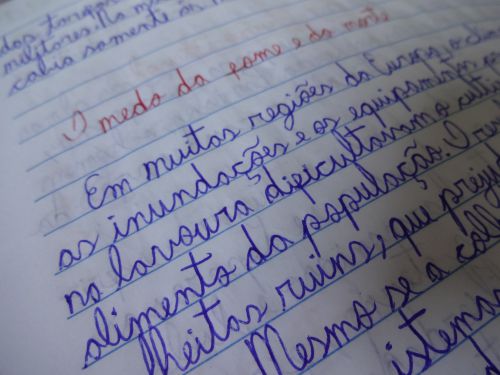 das tropas
militares. No m
cabia somente às
O medo da fome e da morte
Em muitas regiões da Europa, o
as inundações e os equipamentos
na lavoura dificultavam o culti
alimento da população. O
lheitas ruins, que preju
Mesmo se a col
istema